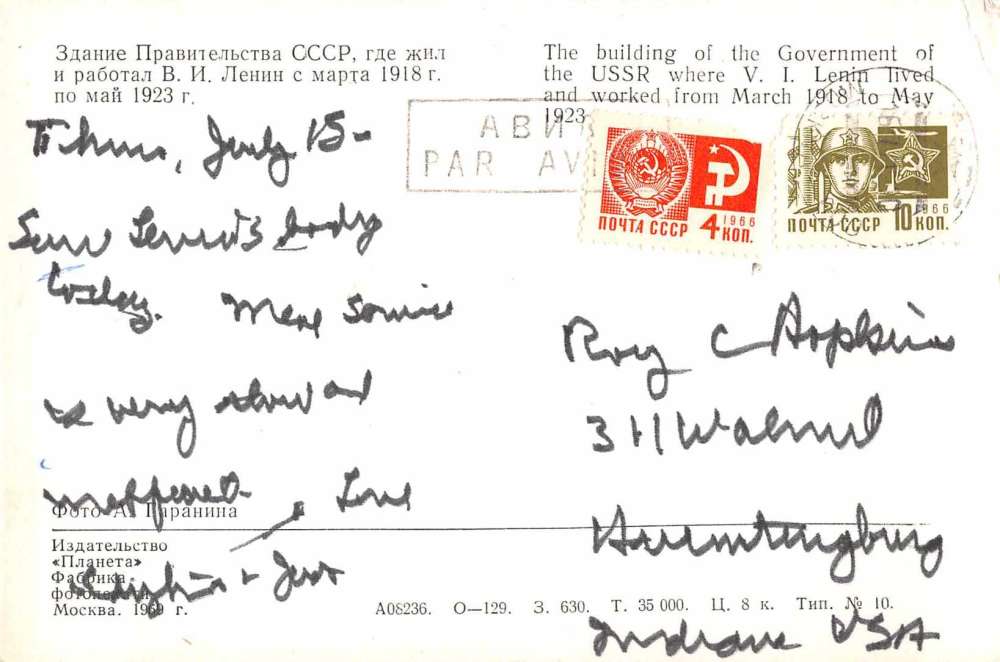 Здание Правительства СССР, где жил
и работал В. И. Ленин с марта 1918 г.
по май 1923 г.
The building of the Government of
the USSR where V. I. Lenin lived
and worked from March 1918 to May
1923
АВИА
PAR AVI
ПОЧТА СССР 4 КОП. 1966
ПОЧТА СССР 10 КОП. 1966
Thurs, July 15-
Saw Lenin's body
today. Meal service
is very slow and
Love
+ Jess
Roy C Hopkins
311 Walnut
Huntingburg
Indiana USA
Фото А. Гаранина
Издательство
«Планета»
Фабрика
фотопечати
Москва. 1969 г.
А08236. О—129. З. 630. Т. 35 000. Ц. 8 к. Тип. № 10.